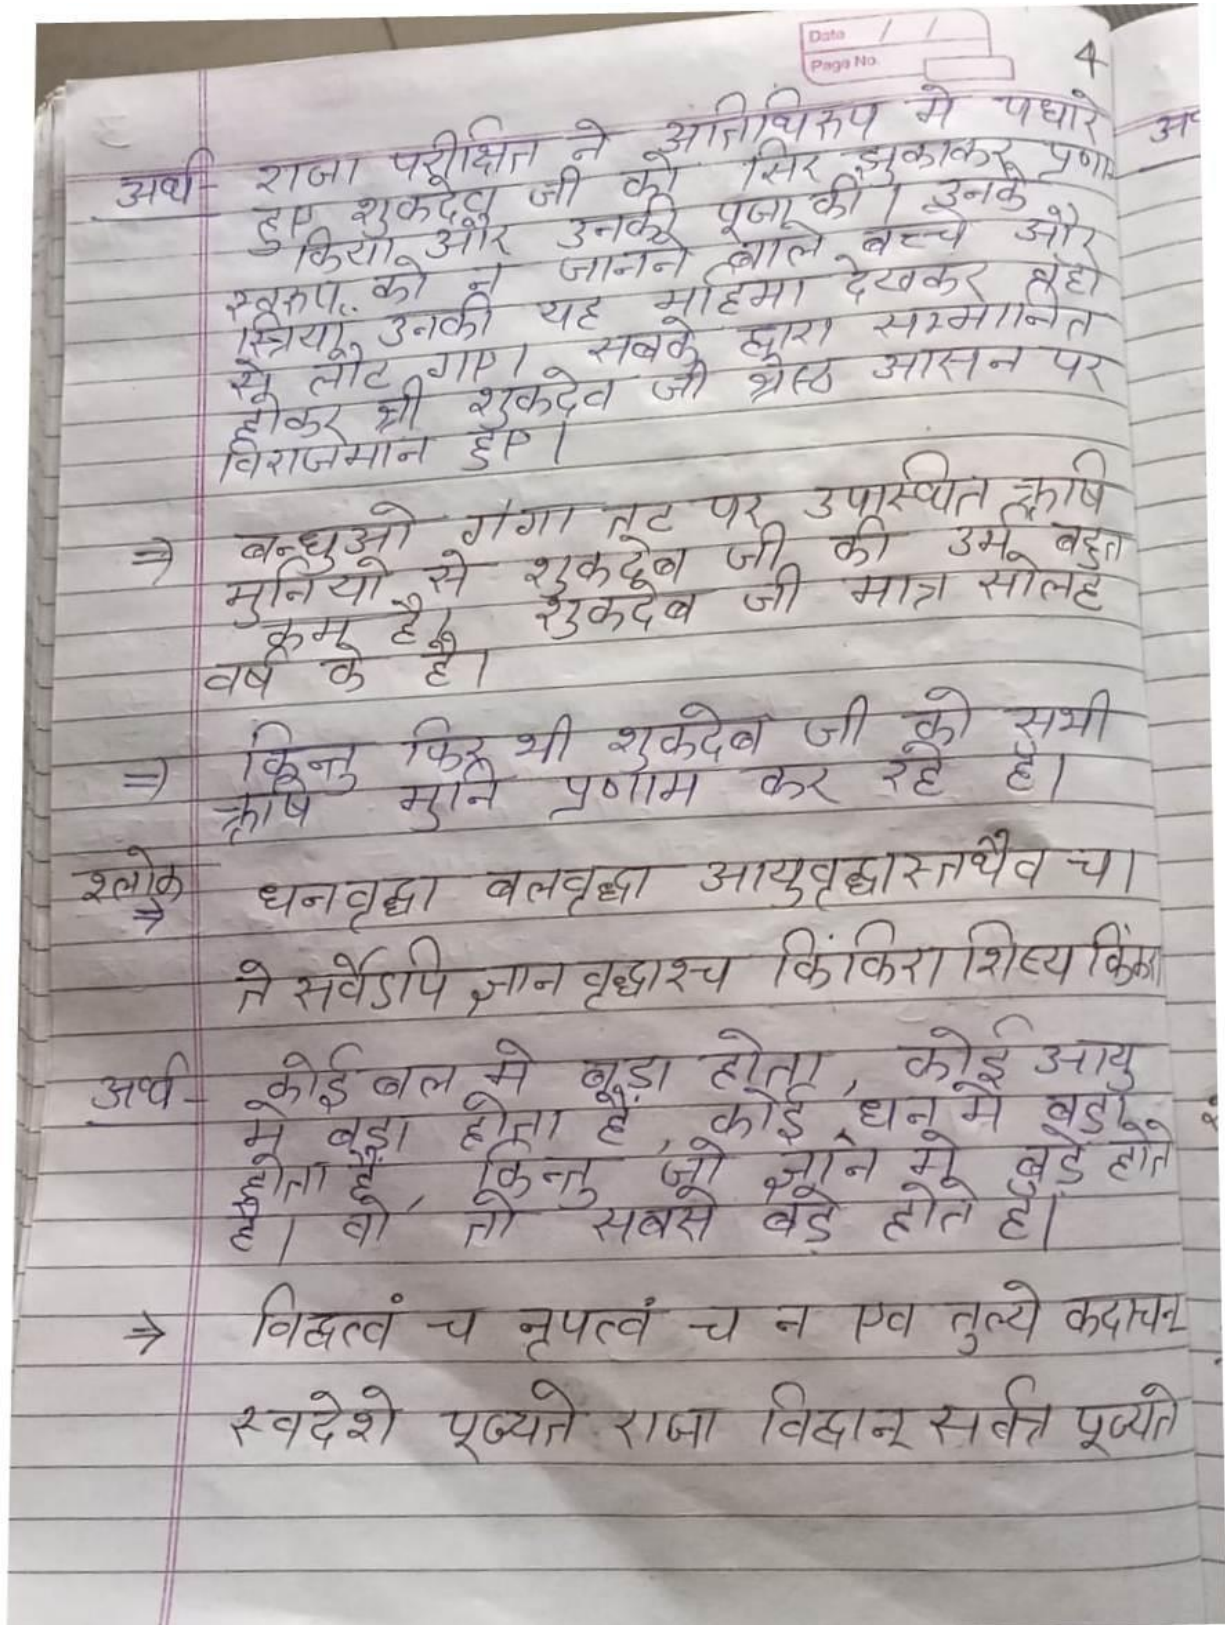 Date / /
Page No.
4
अर्थ- राजा परीक्षित ने अतिथिरुप मे पधारे
हुए शुकदेव जी को सिर झुकाकर प्रणा
किया और उनकी पूजा की। उनके
स्वरुप को न जानने बाले बच्चे और
स्त्रिया उनकी यह महिमा देखकर वहाँ
से लौट गए। सबके द्वारा सम्मानित
होकर श्री शुकदेव जी श्रेस्ठ आसन पर
विराजमान हुए।
⇒ बन्धुओ गंगा तट पर उपस्थित ऋषि
मुनियो से शुकदेब जी की उम्र बहुत
कम है। शुकदेब जी मात्र सोलह
वर्ष के है।
⇒ किन्तु फिर भी शुकदेब जी को सभी
ऋषि मुनि प्रणाम कर रहे है।
श्लोक ⇒ धनवृद्धा बलवृद्धा आयुवृद्धास्तथैव च।
ते सर्वेडपि ज्ञान वृद्धाश्च किंकिरा शिष्य किंकरा
अर्थ- कोई बल मे बड़ा होता, कोई आयु
मे बड़ा होता है, कोई धन मे बड़ा
होता है, किन्तु जो ज्ञान मे बड़े होते
है। वो तो सबसे बड़े होते है।
⇒ विद्वत्वं च नृपत्वं च न एव तुल्ये कदाचन
स्वदेशे पूज्यते राजा विद्वान् सर्वत्र पूज्यते
अ